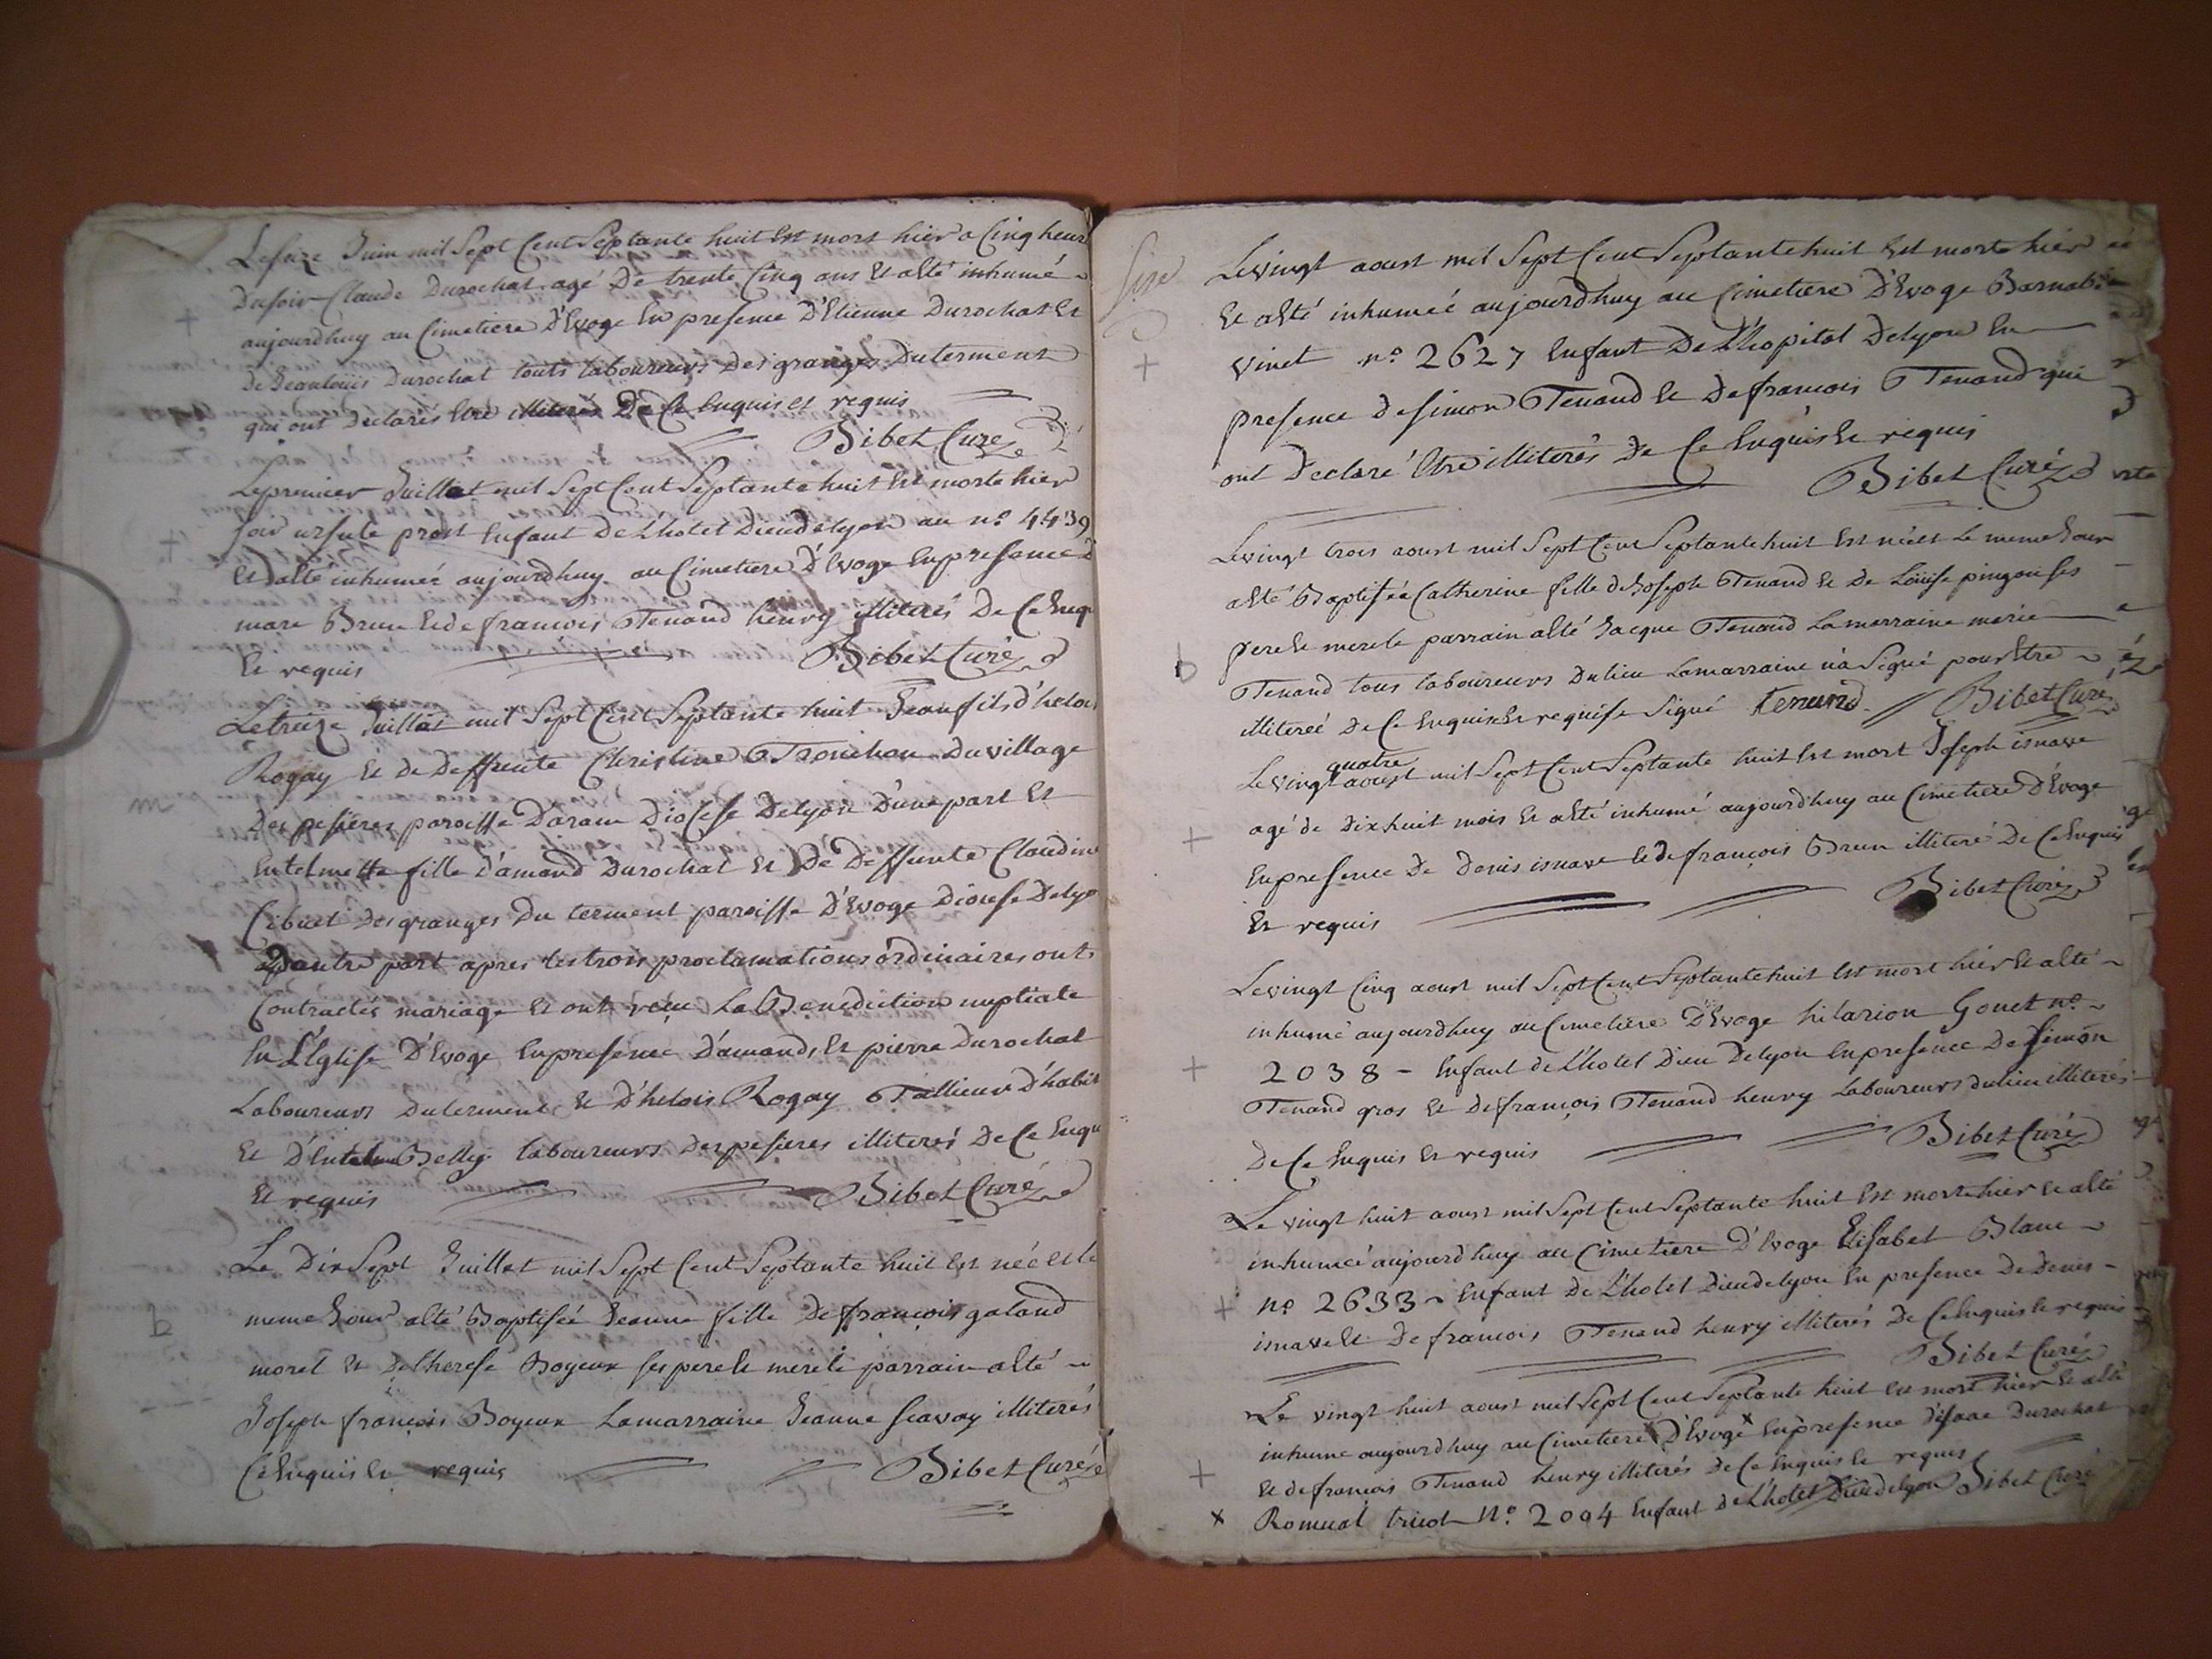 Le seize Juin mil sept Cent septante huit Est mort hier a Cinq heures
du soir Claude Durochat agé De trente Cinq ans et a été inhumé
aujourdhuy au Cimetiere D'Evoge En presence D'Etienne Durochat Et
De Jeanlouis Durochat touts laboureurs Des granges Du terment
qui ont Declarés Etre illiterés De Ce Enquis et requis
Bibet Curé
Le premier Juillet mil sept Cent septante huit Est morte hier
soir ursule prost Enfant De L'hotel Dieu de lyon au n.º 4439
Et a été inhumée aujourdhuy au Cimetiere D'Evoge En presence De
marc Brun Et de francois Tenand henry illiterés De Ce Enqu
Et requis
Bibet Curé
Le treize Juillet mil sept Cent septante huit Jean fils d'helois
Rogay Et De Deffunte Christine Tronchon Du village
Des pesieres paroisse D'aran Diocese De lyon D'une part Et
Entelmette fille D'amand Durochat Et De Deffunte Claudine
Cibuet Des granges Du terment paroisse D'Evoge Diocese De lyo
D'autre part apres les trois proclamations ordinaires ont
Contractés mariage Et ont reçu La Benediction nuptiale
En L'Eglise D'Evoge En presence D'amand, Et pierre Durochat
Laboureurs Du terment Et D'helois Rogay Tallieur D'habit
Et D'Entelme Belly laboureurs Des pesieres illiterés De Ce Enqu
Et requis
Bibet Curé
m
Le Dix sept Juillet mil sept Cent septante huit Est née Et le
meme Jour a été Baptisée Jeanne fille De françois galand
moret Et De therese Boyeux ses pere Et mere le parrain a été
Joseph francois Boyeux La marraine Jeanne savay illiterés
Ce Enquis Et requis
Bibet Curé
b
Le vingt aoust mil sept Cent septante huit Est morte hier
Et a été inhumée aujourdhuy au Cimetiere D'Evoge Barnabé
vinet n.º 2627 Enfant De L'hopital De lyon En
presence De simon Tenand Et De francois Tenand qui
ont Declaré Etre illiterés De Ce Enquis Et requis
Bibet Curé
Le vingt trois aoust mil sept Cent septante huit Est née Et Le meme Jour
a été Baptisée Catherine fille de Joseph Tenand Et De Loüise pingon ses
pere Et mere le parrain a été Jacque Tenand La marraine marie
Tenand tous laboureurs Du lieu La marraine n'a signé pour Etre
illiterée De Ce Enquise Et requise signé tenand Bibet Curé
b
quatre
Le vingt aoust mil sept Cent septante huit Est mort Joseph isnave
agé de Dix huit mois Et a été inhumé aujourdhuy au Cimetiere D'Evoge
En presence De Denis isnave Et De françois Brun illiteré De Ce Enquis
Et requis
Bibet Curé
Le vingt Cinq aoust mil sept Cent septante huit Est mort hier Et a été
inhumé aujourdhuy au Cimetiere D'Evoge hilarion Gonet n.º
2038 - Enfant de L'hotel Dieu De lyon En presence De simon
Tenand gros Et De françois Tenand henry Laboureurs du lieu illiterés
De Ce Enquis Et requis
Bibet Curé
Le vingt huit aoust mil sept Cent septante huit Est morte hier Et a été
inhumée aujourdhuy au Cimetiere D'Evoge Elisabet Blanc
n.º 2633 Enfant De L'hotel Dieu de lyon En presence De Denis
isnave Et De françois Tenand henry illiterés De Ce Enquis Et requis
Bibet Curé
Le vingt huit aoust mil sept Cent septante huit Est mort hier Et a été
inhume aujourdhuy au Cimetiere D'Evoge x En presence d'isaac Durochat
Et De francois Tenand henry illiterés De Ce Enquis Et requis
x Romual tricot N.º 2004 Enfant De L'hotel Dieu de lyon Bibet Curé